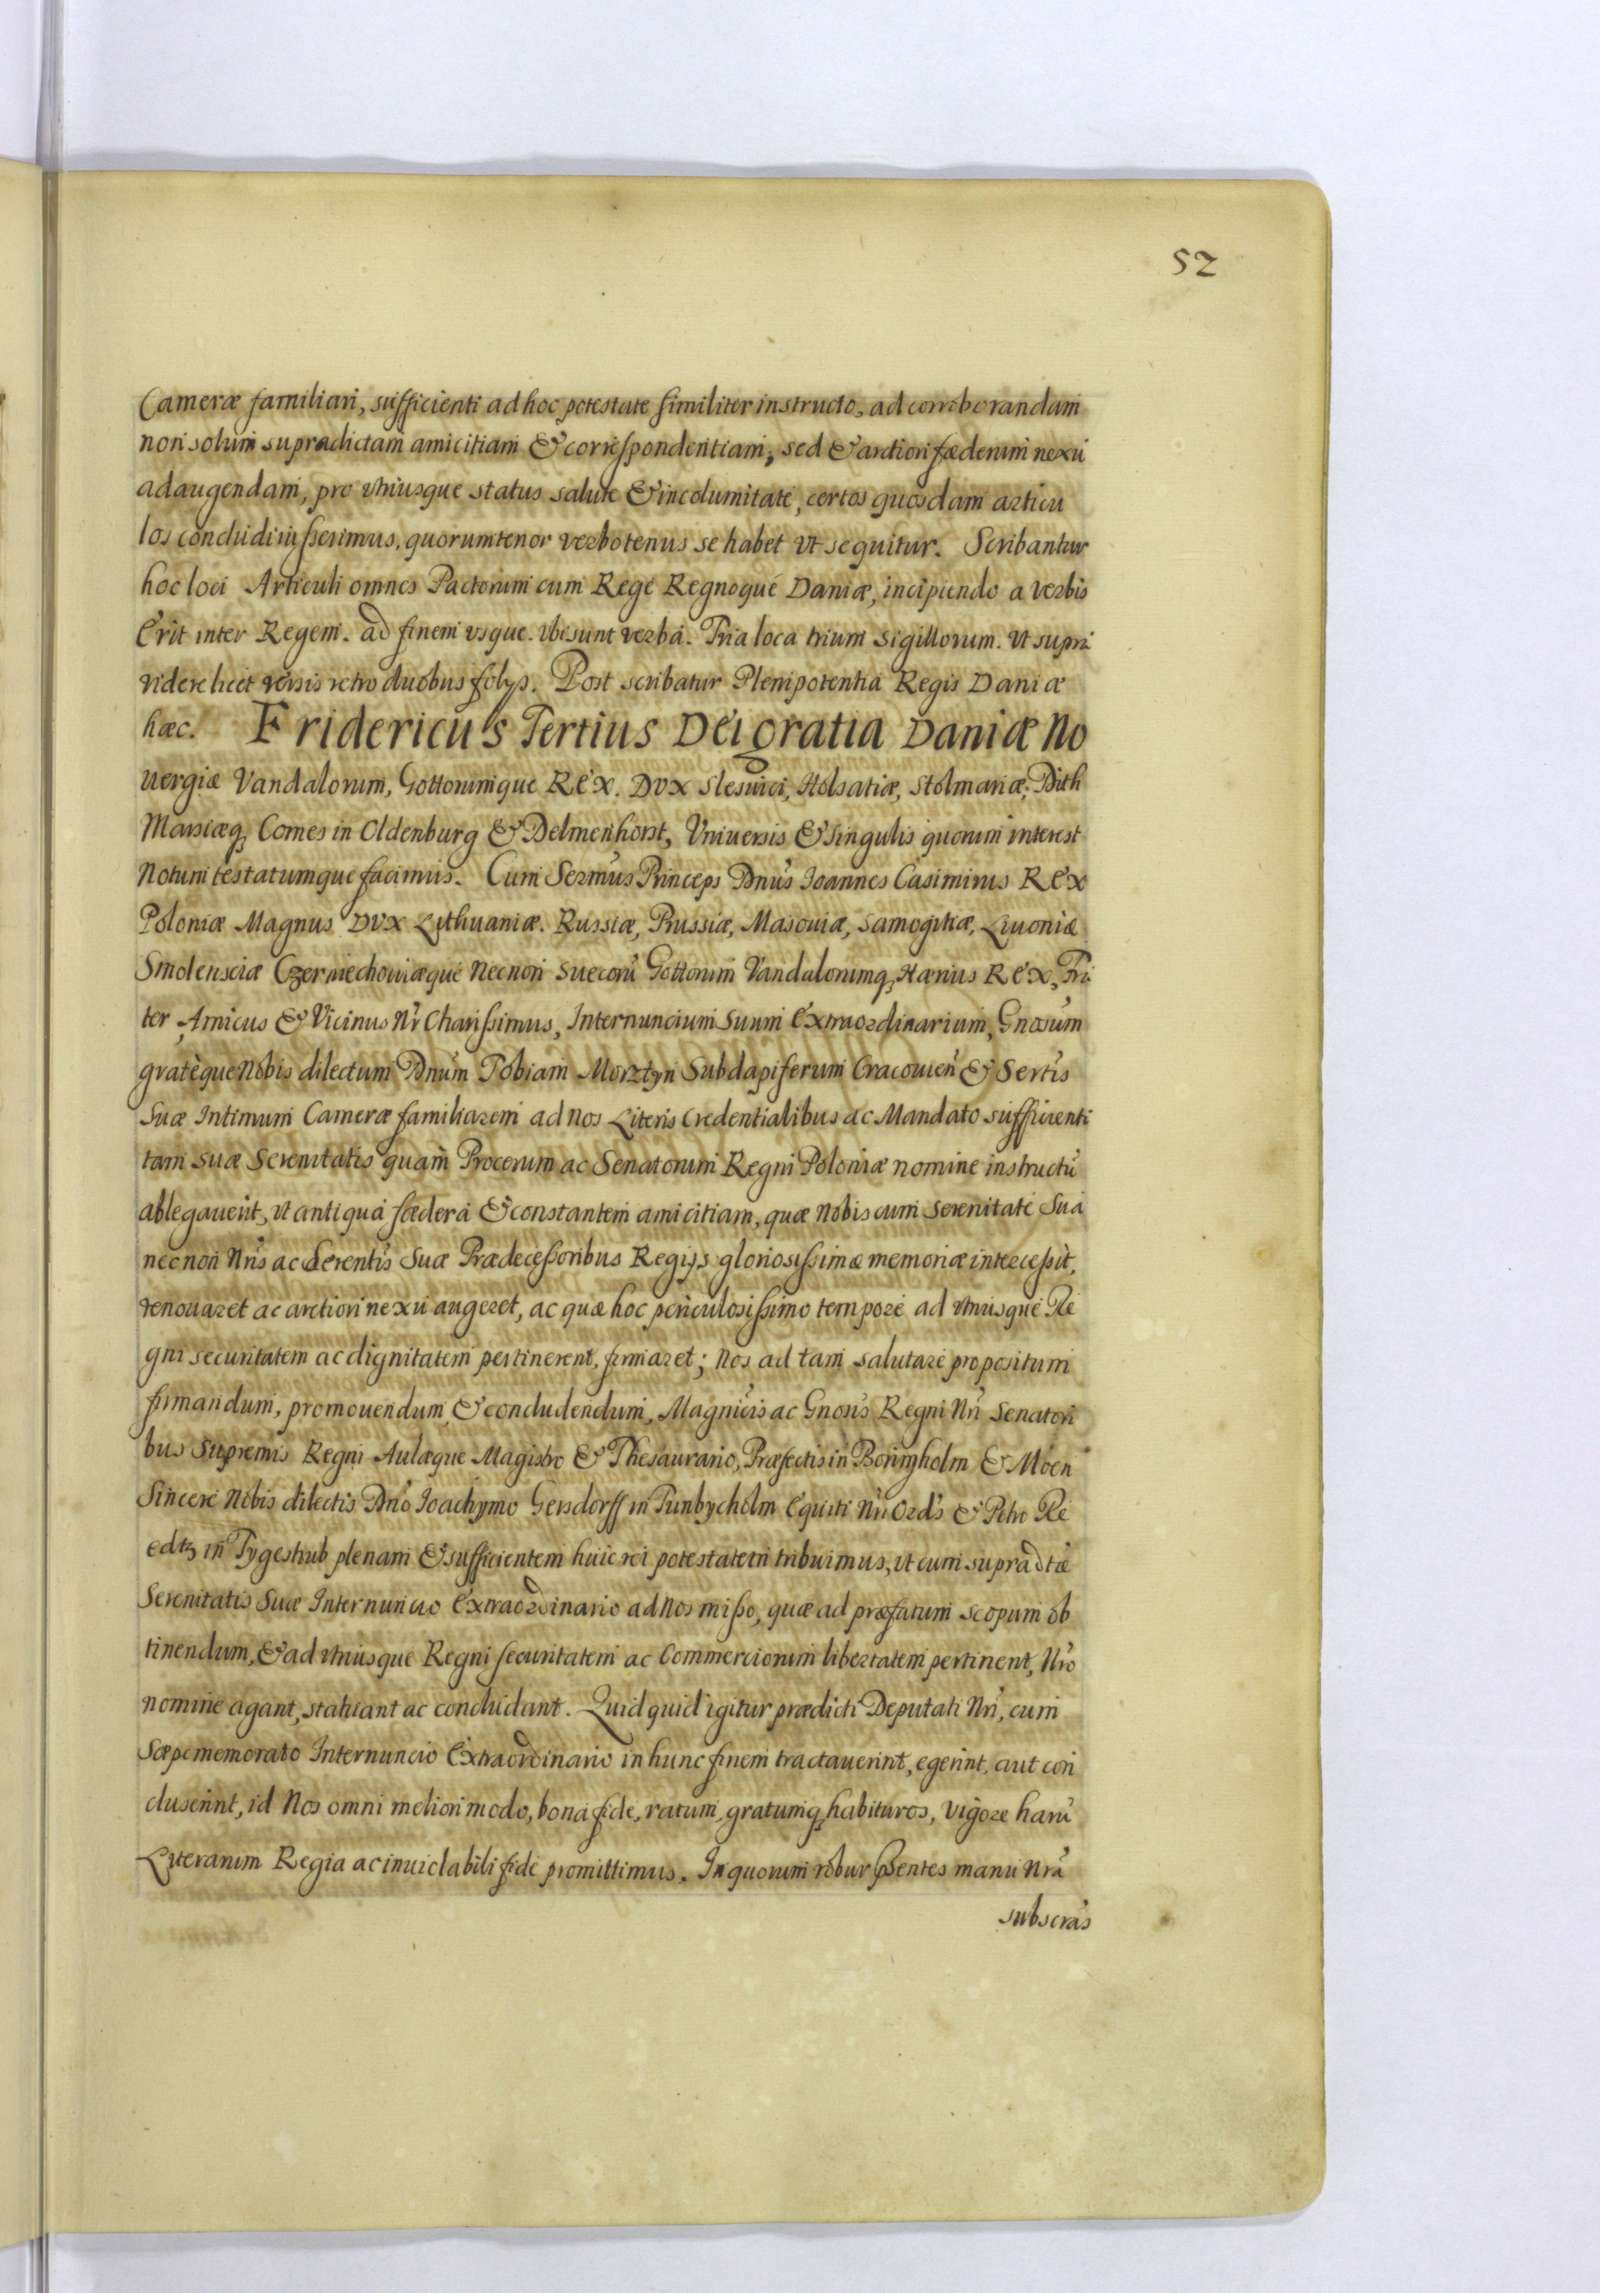 52
Cameræ familiari, sufficienti ad hoc potestate similiter instructo, ad corroborandam
non solum supradictam amicitiam & correspondentiam, sed & arctiori fæderum nexu
adaugendam, pro vtriusque status salute & incolumitate, certos quosdam articu
los concludi iusserimus, quorum tenor verbotenus se habet vt sequitur. Scribantur
hoc loci Articuli omnes Pactorum cum Rege Regnoque Daniæ, incipiendo a verbis
Erit inter Regem. ad finem vsque. vbi sunt verba. Tria loca trium sigillorum. vt supra
videre licet versis retro duobus folys. Post scribatur Plenipotentia Regis Daniæ
hæc. Fridericus Tertius Dei gratia Daniæ No
uergiæ Vandalorum, Gottorumque REX. DVX Slesuici, Holsatiæ, Stolmariæ, Dith
Marsiæq, Comes in Oldenburg & Delmenhorst, Vniuersis & singulis quorum interest
Notum testatumque facimus. Cum Sermus Princeps Dnus Joannes Casimirus REX
Poloniæ Magnus DVX Lithuaniæ. Russiæ, Prussiæ, Masouiæ, Samogitiæ, Liuoniæ
Smolensciæ Czerniechouiæque Necnon Suecorũ Gottorum Vandalorumq, Hærius REX, Fra
ter, Amicus & Vicinus Nr Charissimus, Internuncium Suum Extraordinarium, Gnosum
gratèque Nobis dilectum Dnum Tobiam Morztyn Subdapiferum Cracouien & Sertis
Suæ Intimum Cameræ familiarem ad Nos Literis Credentialibus ac Mandato sufficienti
tam suæ Serenitatis quam Procerum ac Senatorum Regni Poloniæ nomine instructũ
ablegauerit, vt antiqua fædera & constantem amicitiam, quæ Nobis cum Serenitate Sua
necnon Nris ac Serentis Suæ Prædecessoribus Regijs gloriosissimæ memoriæ intercessit,
renouaret ac arctiori nexu augeret, ac quæ hoc periculosissimo tempore ad vtriusque Re
gni securitatem ac dignitatem pertinerent, firmaret; Nos ad tam salutare propositum
firmandum, promouendum, & concludendum, Magnicis ac Gnosis Regni Nri Senatori
bus Supremis Regni Aulæque Magistro & Thesaurario, Præfectis in Boringholm & Möen
Sincere Nobis dilectis Dno Joachymo Gersdorff in Tunbycholm Equiti Nri Ordis & Petro Re
edtz in Tygestrub plenam & sufficientem huic rei potestatem tribuimus, vt cum supradtæ
Serenitatis Suæ Internuncio Extraordinario ad Nos misso, quæ ad præfatum scopum ob
tinendum, & ad vtriusque Regni securitatem ac Commerciorum libertatem pertinent, Nro
nomine agant, statuant ac concludant. Quidquid igitur prædicti Deputati Nri, cum
Sæpememorato Internuncio Extraordinario in hunc finem tractauerint, egerint, aut con
cluserint, id Nos omni meliori modo, bona fide, ratum, gratumq, habituros, vigore harũ
Literarum Regia ac inuiolabili fide promittimus. In quorum robur psentes manu Nra
subscras